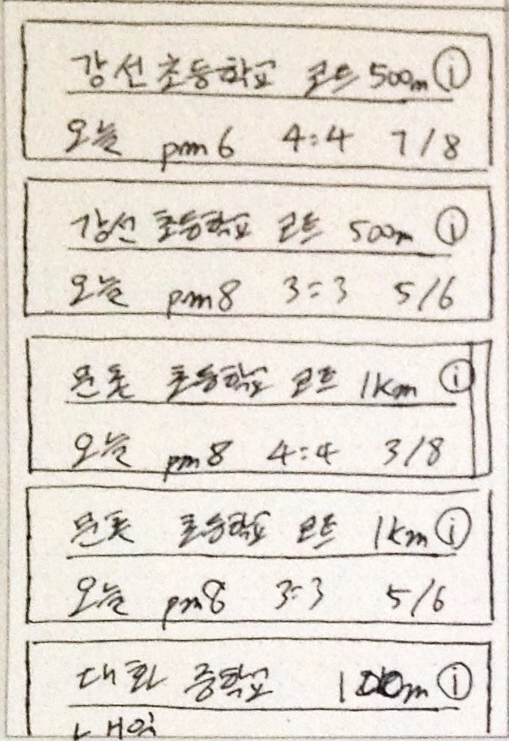 강선초등학교 코트 500m ⓘ
오늘 pm6 4:4 7/8
강선 초등학교 코트 500m ⓘ
오늘 pm8 3:3 5/6
초등학교 코트 1km ⓘ
오늘 pm8 4:4 3/8
초등학교 코트 1km ⓘ
오늘 pm8 3:3 5/6
대화 중학교 100m ⓘ
내일